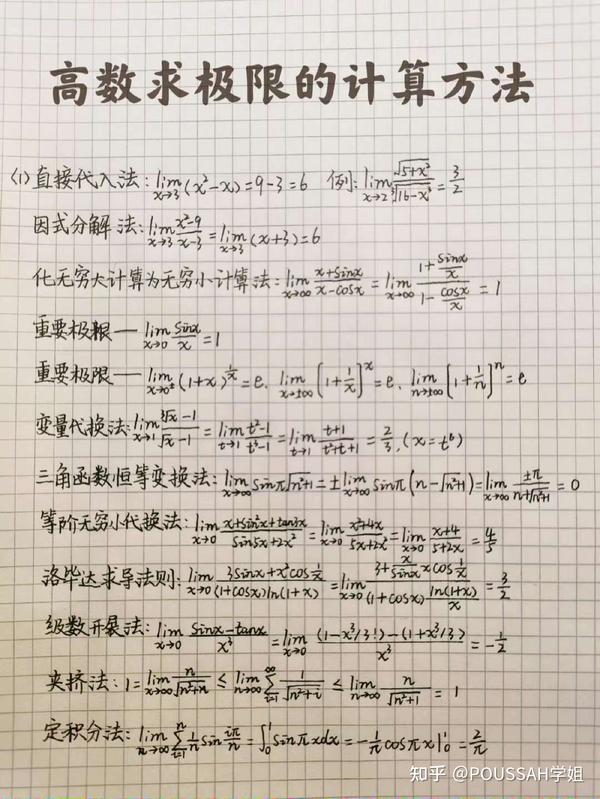 高数求极限的计算方法
(1)直接代入法:lim x→3 (x²-x)=9-3=6 例:lim x→2 √(5+x²)/³√(16-x³)=3/2
因式分解法:lim x→3 (x²-9)/(x-3)=lim x→3 (x+3)=6
化无穷大计算为无穷小计算法:lim x→∞ (x+sinx)/(x-cosx)=lim x→∞ (1+sinx/x)/(1-cosx/x)=1
重要极限—lim x→0 sinx/x=1
重要极限—lim x→0± (1+x)^(1/x)=e、lim x→±∞ [1+1/x]^x=e、lim n→±∞ [1+1/n]^n=e
变量代换法:lim x→1 (³√x-1)/(√x-1)=lim t→1 (t²-1)/(t³-1)=lim t→1 (t+1)/(t²+t+1)=2/3,(x=t⁶)
三角函数恒等变换法:lim x→∞ sinπ√(n²+1)=±lim x→∞ sinπ(n-√(n²+1))=lim x→∞ ±π/(n+√(n²+1))=0
等阶无穷小代换法:lim x→0 (x+sin²x+tan3x)/(sin5x+2x²)=lim x→0 (x²+4x)/(5x+2x²)=lim x→0 (x+4)/(5+2x)=4/5
洛毕达求导法则:lim x→0 (3sinx+x²cos1/x)/((1+cosx)ln(1+x))=lim x→0 (3+x/sinx xcos1/x)/((1+cosx)ln(1+x)/x)=3/2
级数开展法:lim x→0 (sinx-tanx)/x³=lim x→0 ((1-x³/3!)-(1+x³/3))/x³=-1/2
夹挤法:1=lim x→∞ n/√(n²+n)≤lim n→∞ ∑ i=1 ∞ 1/√(n²+i)≤lim n→∞ n/√(n²+1)=1
定积分法:lim n→∞ ∑ i=1 n 1/n sin iπ/n=∫₀¹sinπxdx=-1/π cosπx|₀¹=2/π
知乎 @POUSSAH学姐